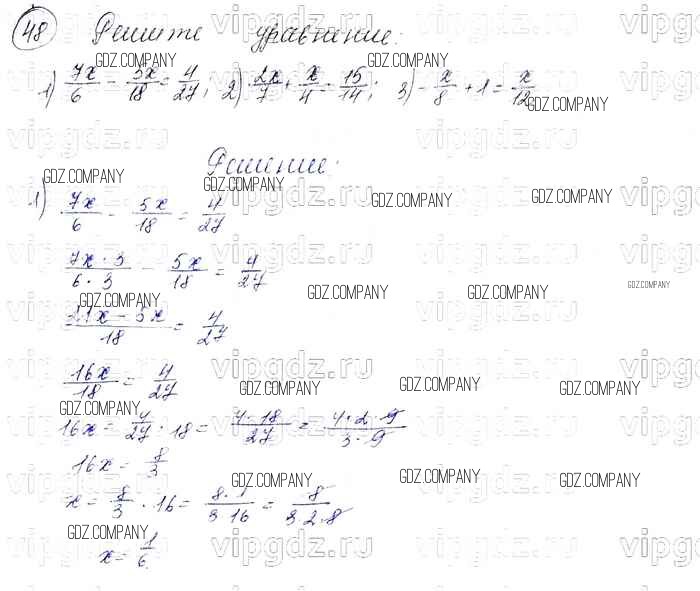 48 Решите уравнение:
1) 7x/6 - 5x/18 = 4/27; 2) 2x/7 + x/4 = 15/14; 3) - x/8 + 1 = x/12
Решение:
1) 7x/6 - 5x/18 = 4/27
7x · 3/6 · 3 - 5x/18 = 4/27
21x - 5x/18 = 4/27
16x/18 = 4/27
16x = 4/27 · 18 = 4 · 18/27 = 4 · 2 · 9/3 · 9
16x = 8/3
x = 8/3 · 16 = 8 · 1/3 · 16 = 8/3 · 2 · 8
x = 1/6
GDZ.COMPANY
vipgdz.ru